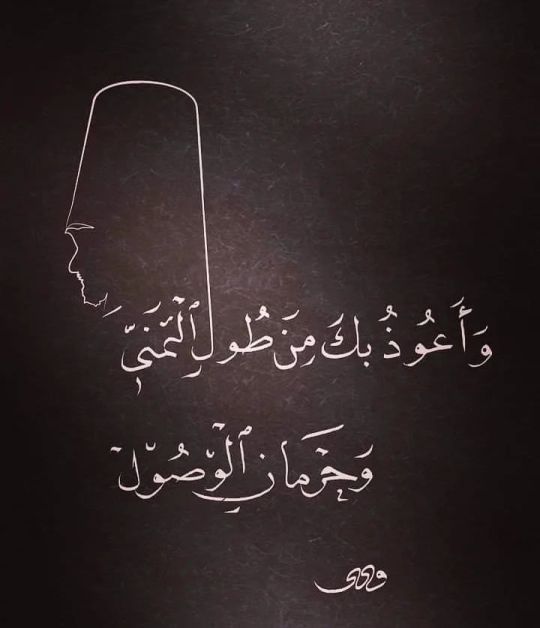 وَأَعُوذُ بِكَ مِنَ طُولِ ٱلْتَّمَنِّي
وَحِرْمَانِ ٱلْوُصُولْ